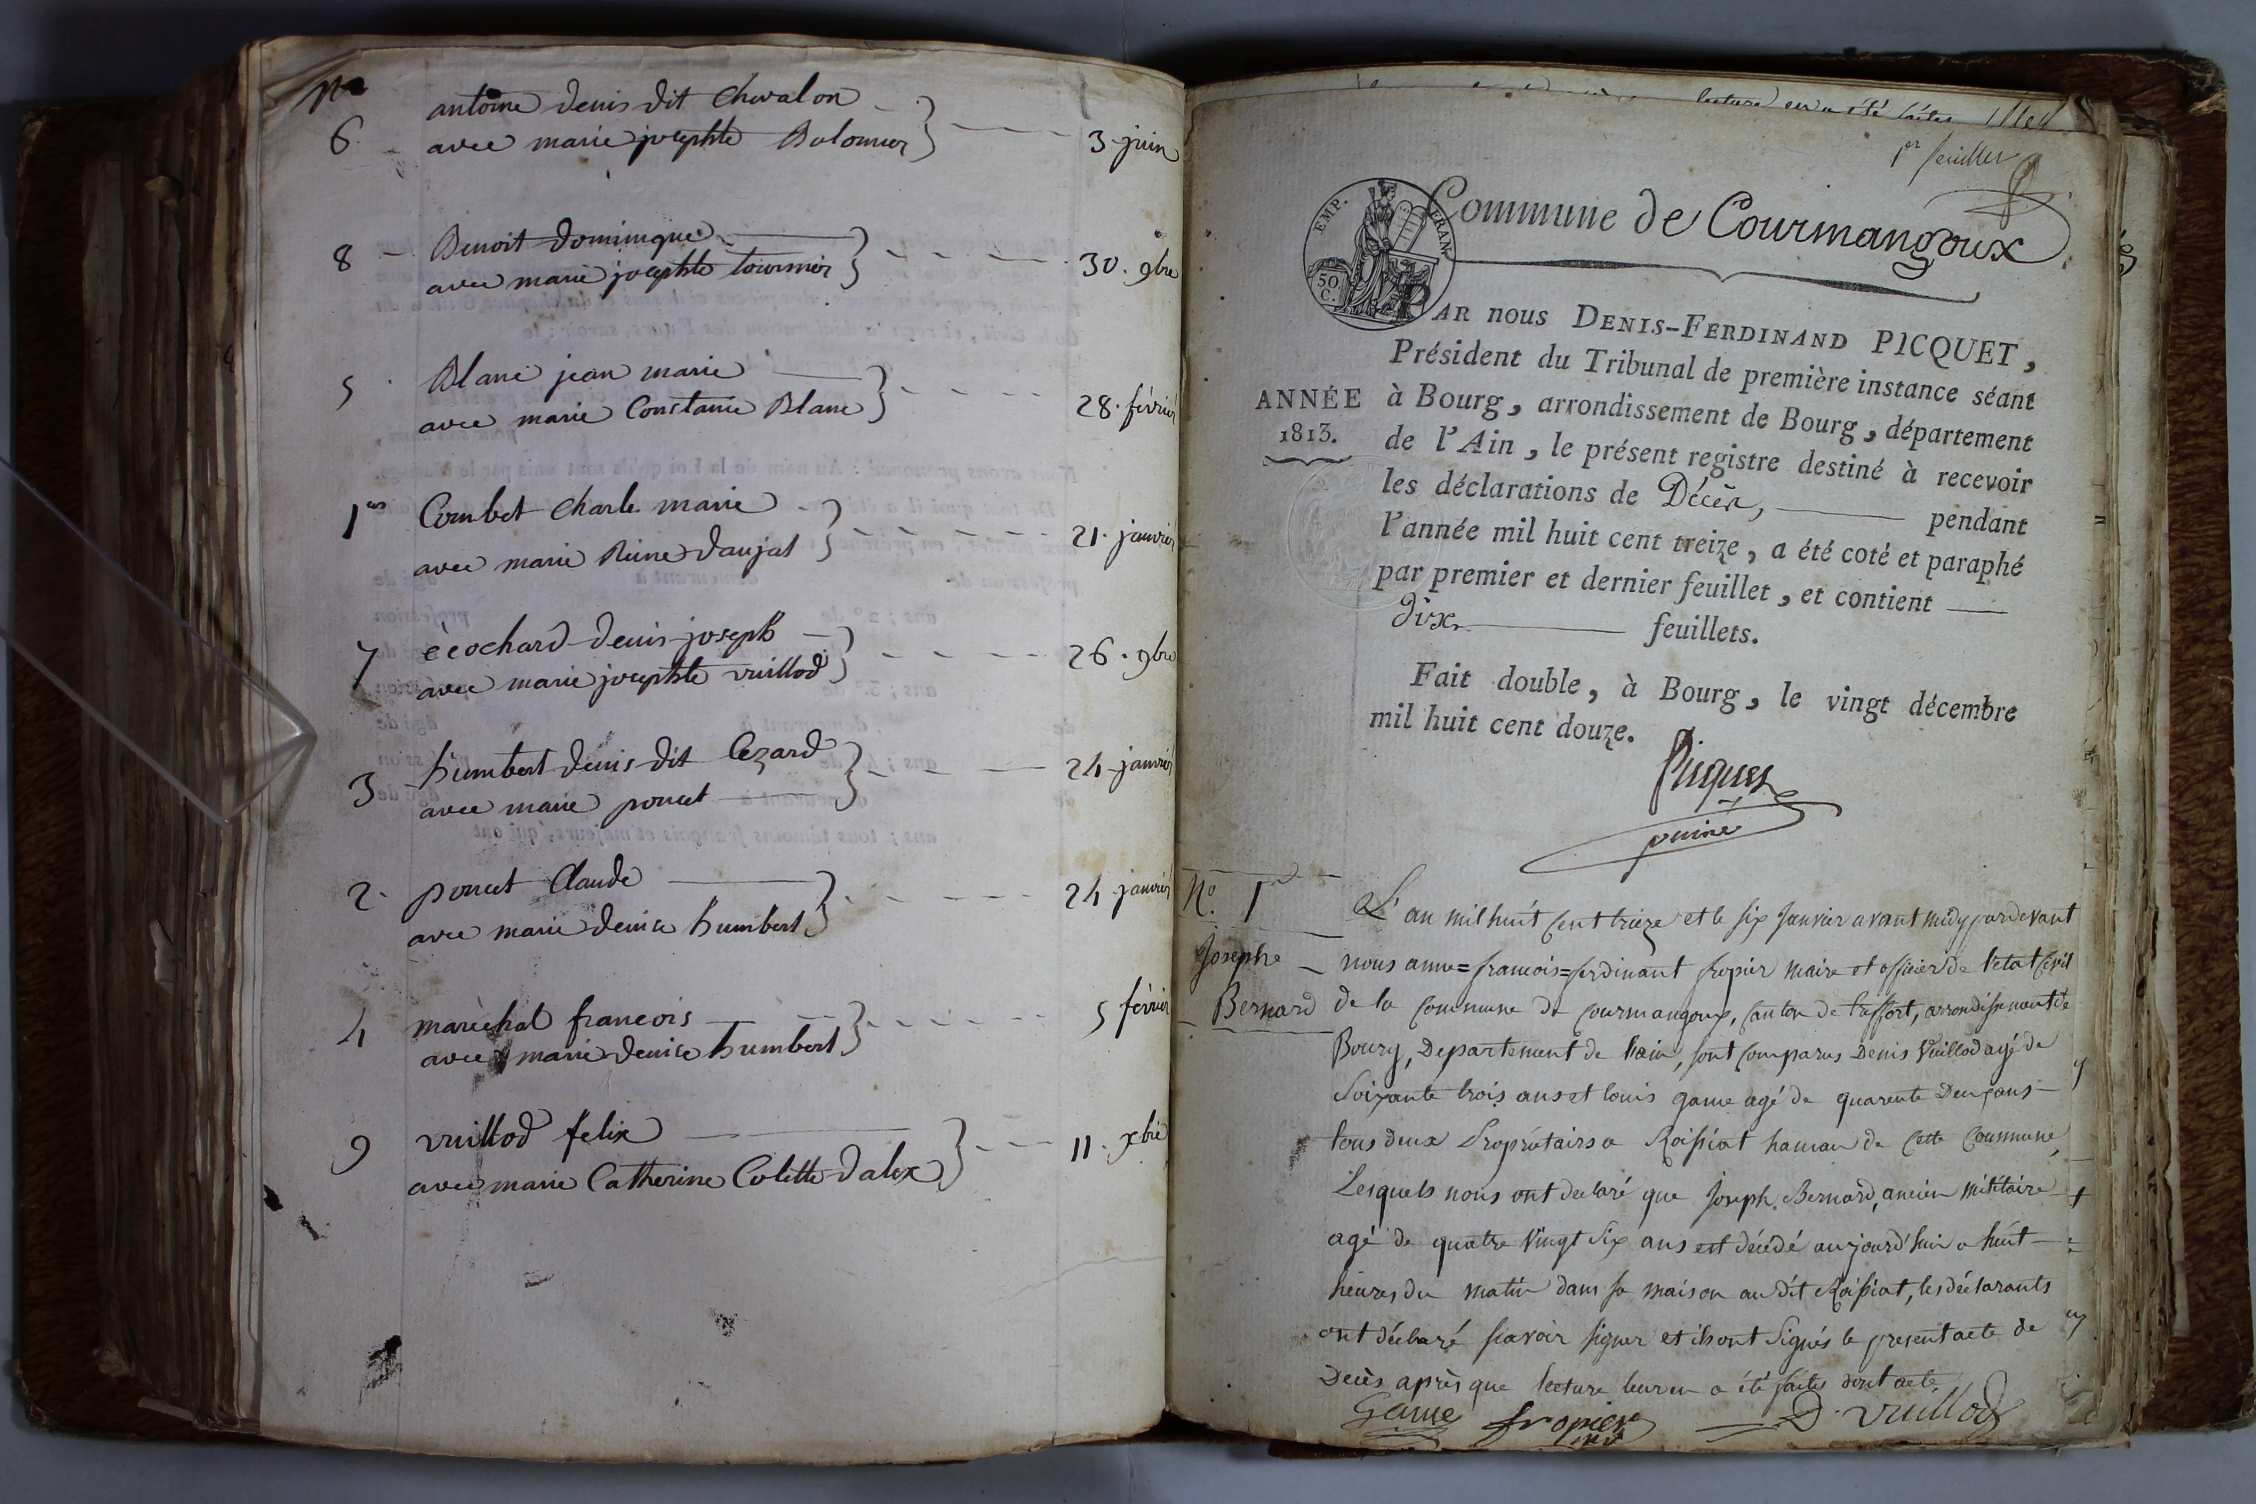 No
antoine denis dit Chevalon
6 avec marie josephte Bolomier 3 juin
8 Benoit dominique
avec marie josephte tournier 30. 9bre
5 Blanc jean marie
avec marie Constance Blanc 28. février
1er Combet Charle marie
avec marie Reine daujat 21. janvier
7 ècochard denis joseph
avec marie josephte vuillod 26. 9bre
3 humbert denis dit Lezard
avec marie poncet 24 janvier
2. poncet Claude
avec marie denise humbert 24 janvier
4 marèchal francois
avec marie denise humbert 5 février
9 vuillod felix
avec marie Catherine Colette dalex 11. xbre
lecture en a été faites
1er feuillet
EMP. FRAN.
50 C.
Commune de Courmangoux
AR nous DENIS-FERDINAND PICQUET,
Président du Tribunal de première instance séant
ANNÉE à Bourg, arrondissement de Bourg, département
1813. de l'Ain, le présent registre destiné à recevoir
les déclarations de Décès, pendant
l'année mil huit cent treize, a été coté et paraphé
par premier et dernier feuillet, et contient
dix feuillets.
Fait double, à Bourg, le vingt décembre
mil huit cent douze.
Picquet
No. 1er
Josephe
Bernard
L'an mil huit cent treize et le six Janvier avant midy pardevant
nous anne=francois=ferdinant fropier maire et officier de l'etat Civil
de la Commune de Courmangoux, Canton de treffort, arrondissement de
Bourg, Departement de l'ain, sont Comparus Denis Vuillod agé de
Soixante trois ans et louis game agé de quarente Deux ans
tous deux Propriétaires a Roissiat hamau de Cette Commune,
Lesquels nous ont declaré que Joseph Bernard, ancien militaire
agé de quatre Vingt Six ans est décédé aujourd'huii a huit
heures du matin dans sa maison au dit Roissiat, les déclarants
ont déclaré scavoir signer et ils ont signés le present acte de
Decès après que lecture leur en a été faites dont acte
Game fropier D. vuillod